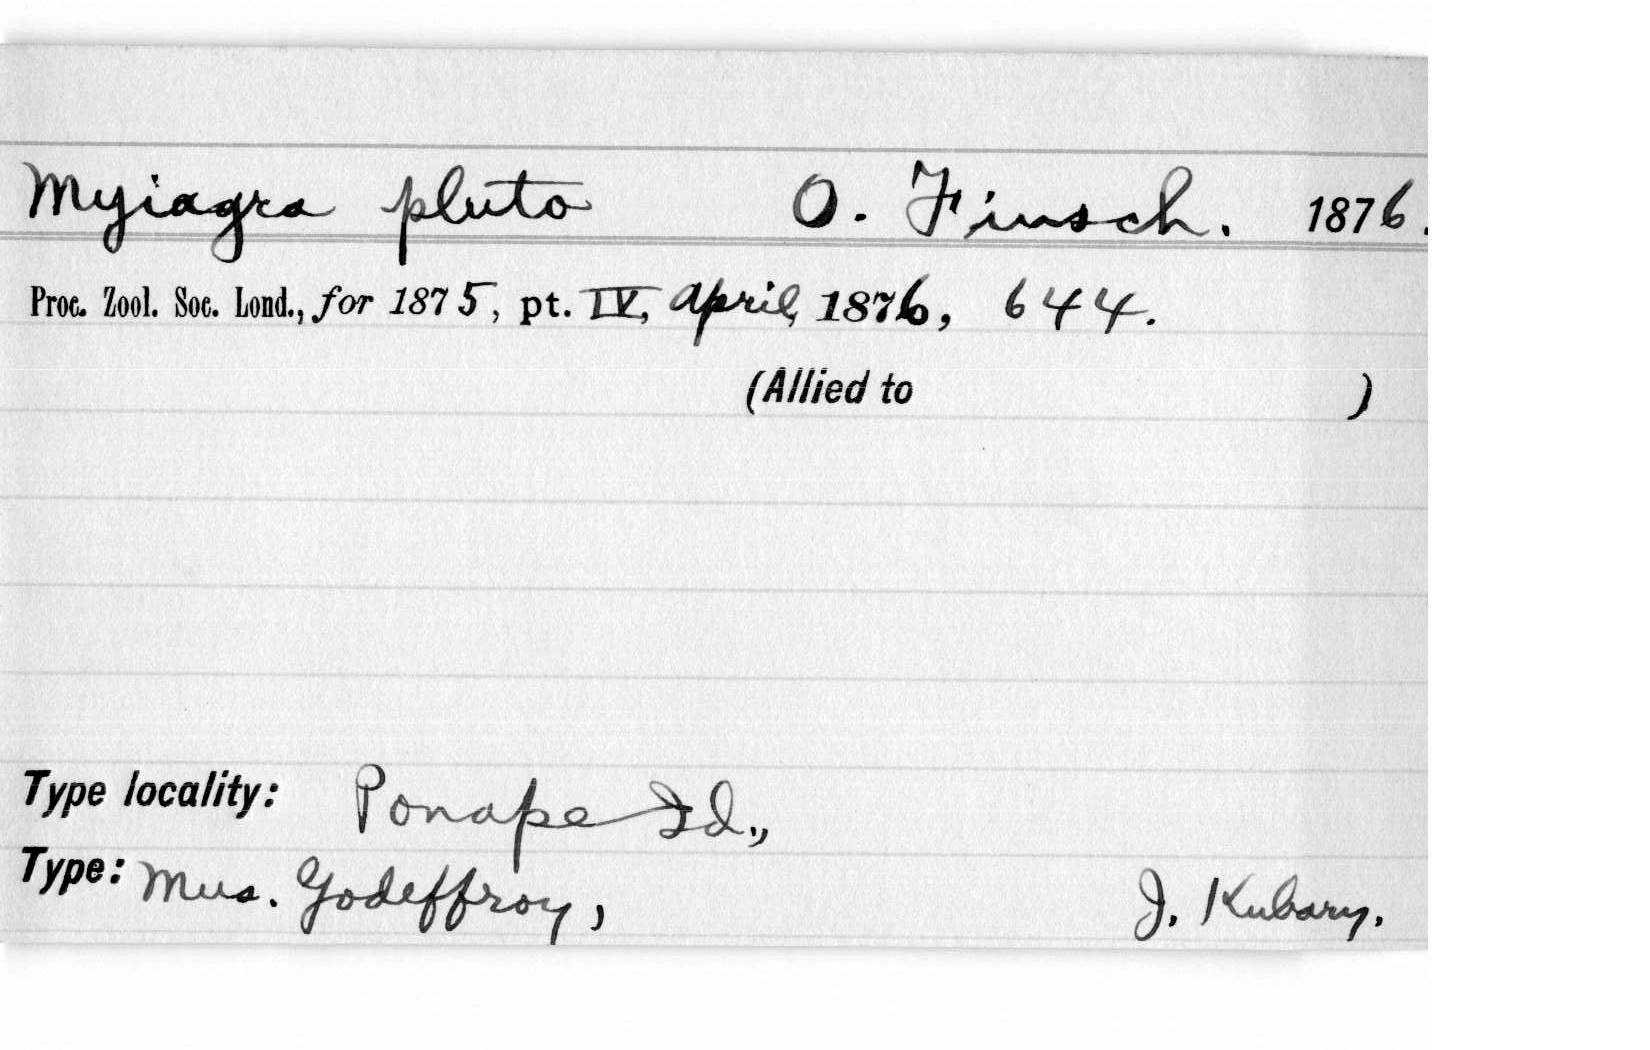 Myiagra pluto O. Finsch. 1876.
Proc. Zool. Soc. Lond., for 1875, pt. IV, April, 1876, 644.
(Allied to )
Type locality: Ponape Id.,
Type: Mus. Godeffroy, J. Kubary.